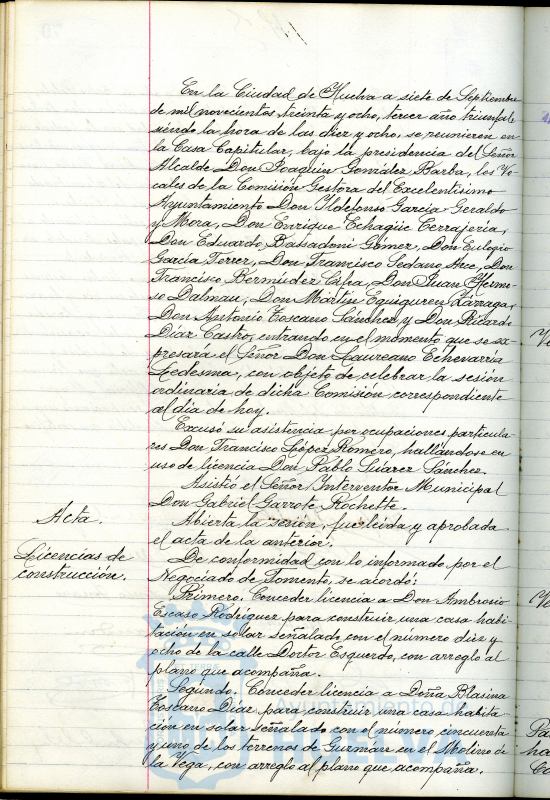 En la Ciudad de Huelva a siete de Septiembre
de mil novecientos treinta y ocho, tercer año triunfal,
siendo la hora de las diez y ocho, se reunieron en
la Casa Capitular, bajo la presidencia del Señor
Alcalde Don Joaquín González Barba, los Vo-
cales de la Comisión Gestora del Excelentísimo
Ayuntamiento Don Ildefonso García Geraldo
y Mora, Don Enrique Echagüe Cerrajería,
Don Eduardo Bassadoni Gómez, Don Eulogio
García Ferrer, Don Francisco Sedani Arce, Don
Francisco Bermúdez Cilia, Don Juan Hermo-
so Dalmau, Don Martín Eguiguren Lárraga,
Don Antonio Toscano Sánchez y Don Ricardo
Díaz Castro, entrando en el momento que se ex-
presará el Señor Don Laureano Echevarría
Ledesma, con objeto de celebrar la sesión
ordinaria de dicha Comisión correspondiente
al día de hoy.
Excusó su asistencia por ocupaciones particula-
res Don Francisco López Romero, hallándose en
uso de licencia Don Pablo Suárez Sánchez.
Asistió el Señor Interventor Municipal
Don Gabriel Garrote Rochette.
Acta.
Abierta la sesión, fue leída y aprobada
el acta de la anterior.
Licencias de
construcción.
De conformidad con lo informado por el
Negociado de Fomento, se acordó:
Primero. Conceder licencia a Don Ambrosio
Escaso Rodríguez para construir una casa habi-
tación en solar señalado con el número diez y
ocho de la calle Doctor Esquerdo, con arreglo al
plano que acompaña.
Segundo. Conceder licencia a Doña Blasina
Toscano Díaz para construir una casa habita-
ción en solar señalado con el número cincuenta
y uno de los terrenos de Guzmán en el Molino de
la Vega, con arreglo al plano que acompaña.
Ayuntamiento de
HUELVA